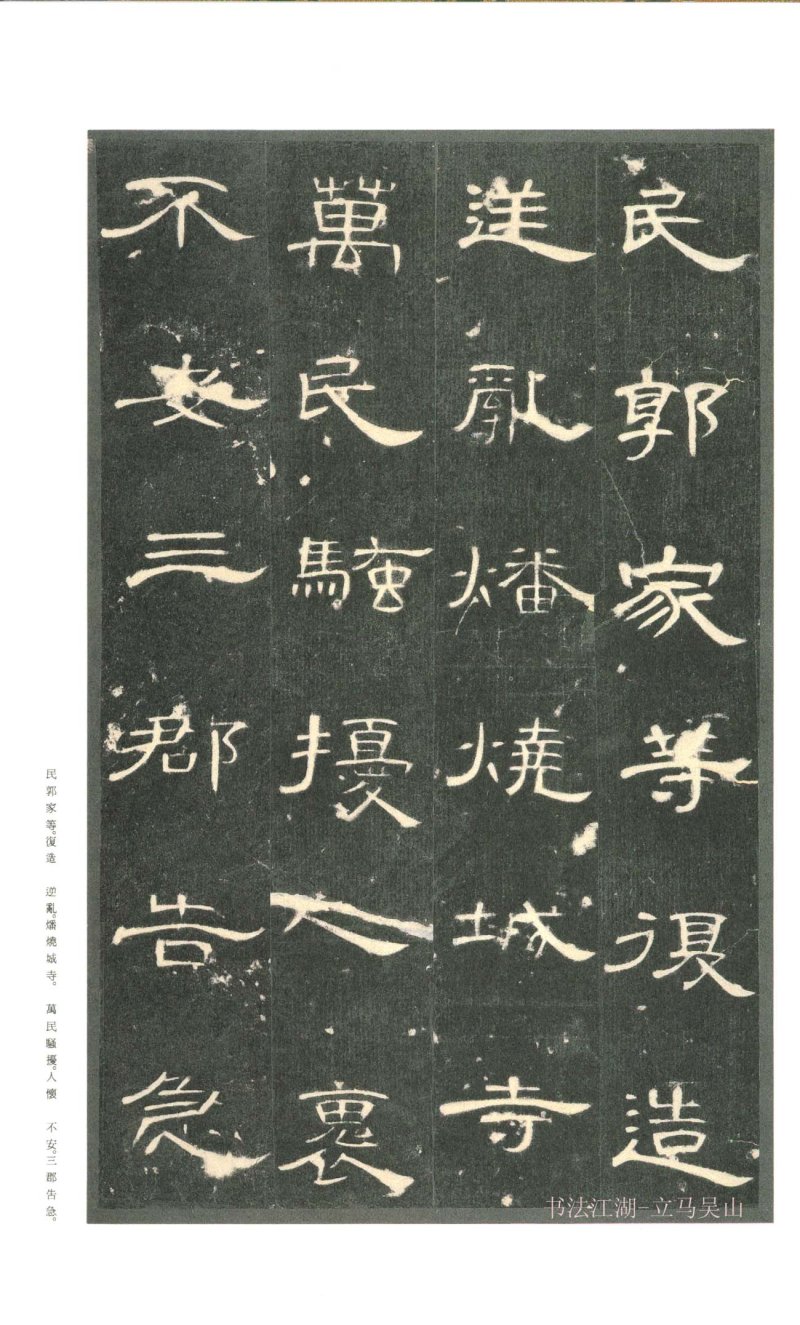 民郭家等復造
逆亂燔燒城寺
萬民騷擾人褱
不安三郡告急
民郭家等。復造　逆亂。燔燒城寺。　萬民騷擾。人懷　不安。三郡告急。
书法江湖-立马吴山